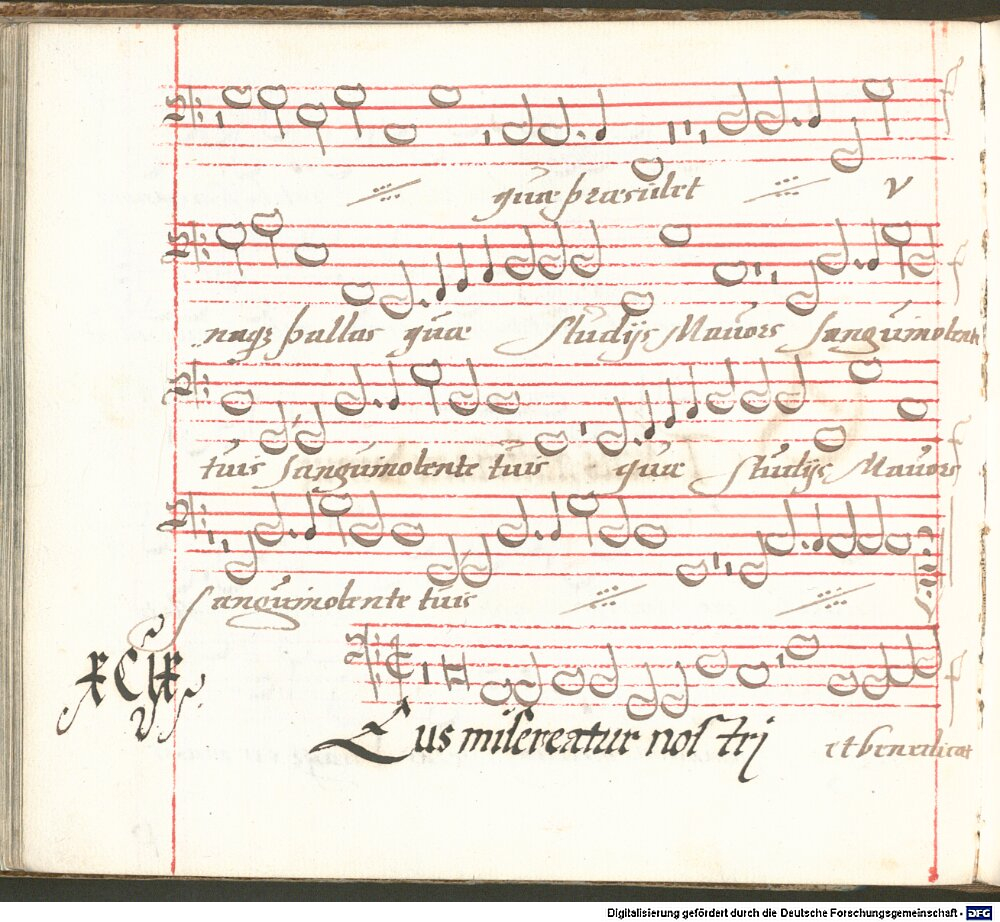 quæ præsidet v
naqz pallas quæ studijs Mauors sanguinolente
tuis sanguinolente tuis quæ studijs Mauors
sanguinolente tuis
XCIX
Eus misereatur nostrj et benedicat
Digitalisierung gefördert durch die Deutsche Forschungsgemeinschaft - DFG